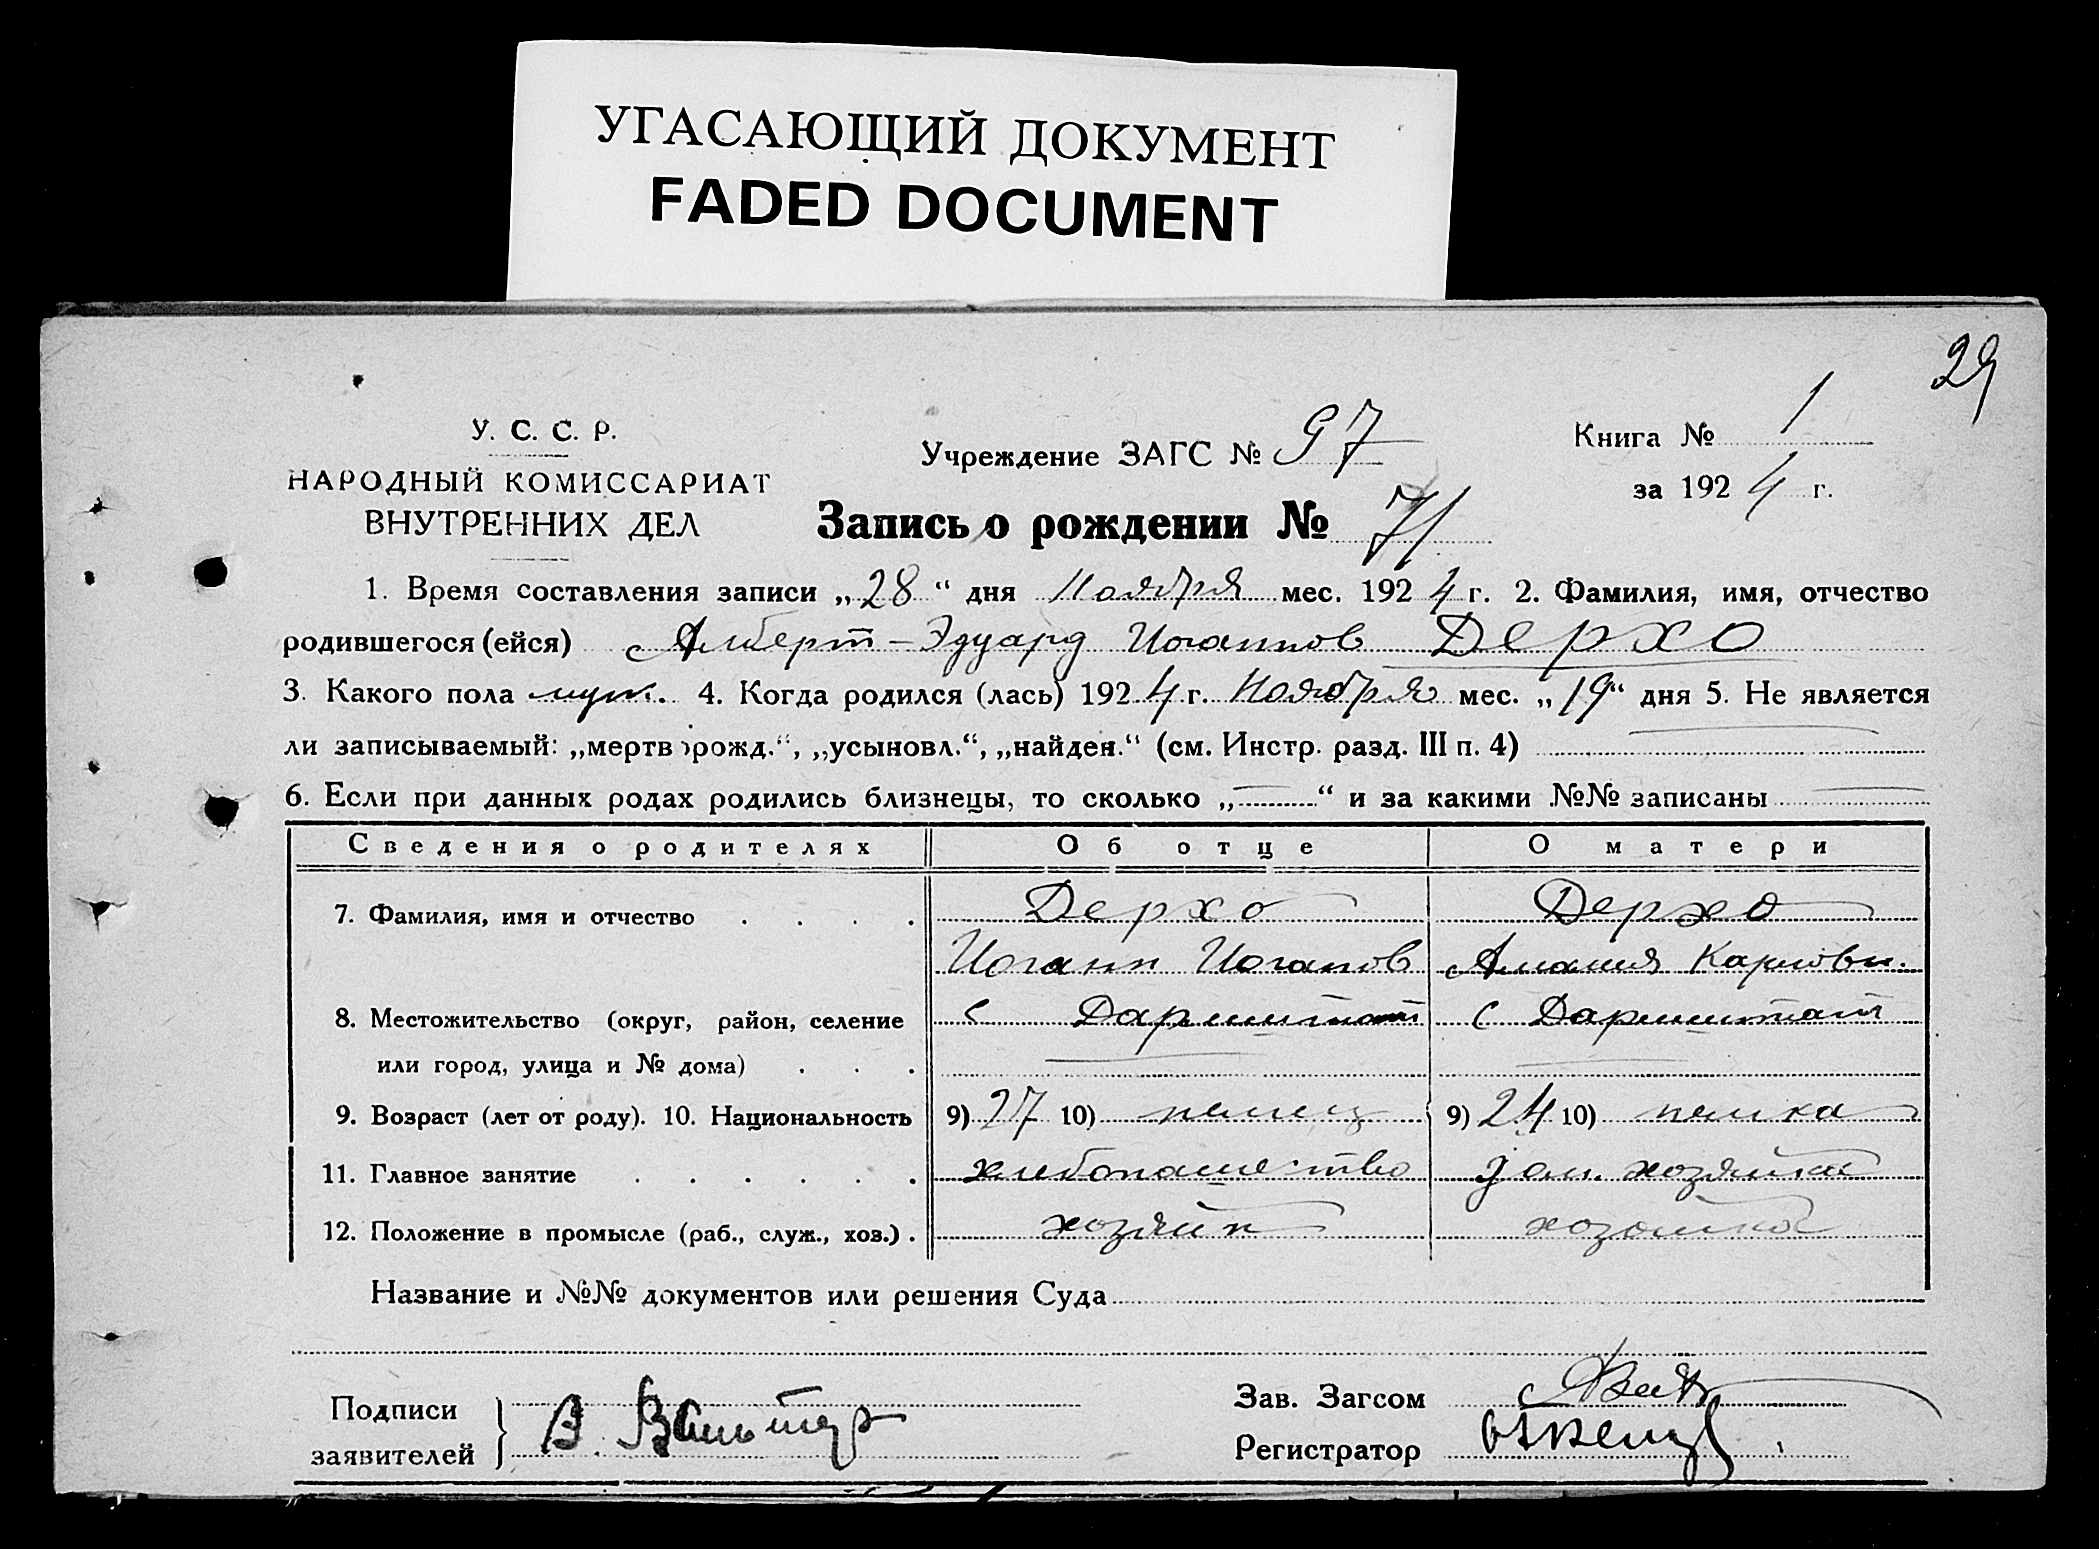 УГАСАЮЩИЙ ДОКУМЕНТ
FADED DOCUMENT
29
У. С. С. Р.
НАРОДНЫЙ КОМИССАРИАТ
ВНУТРЕННИХ ДЕЛ
Учреждение ЗАГС № 97
Книга № 1
за 1924 г.
Запись о рождении № 71
1. Время составления записи „28“ дня Ноября мес. 1924 г. 2. Фамилия, имя, отчество
родившегося (ейся) Альберт-Эдуард Иоганнов Дерхо
3. Какого пола муж. 4. Когда родился (лась) 1924 г. Ноября мес. „19“ дня 5. Не является
ли записываемый: „мертворожд.“, „усыновл.“, „найден.“ (см. Инстр. разд. III п. 4) —
6. Если при данных родах родились близнецы, то сколько „—“ и за какими №№ записаны —
Сведения о родителях Об отце О матери
7. Фамилия, имя и отчество . . . . Дерхо Дерхо
Иоганн Иоганов Амалия Карловн.
8. Местожительство (округ, район, селение с Дармштат с Дармштат
или город, улица и № дома) . . . —
9. Возраст (лет от роду). 10. Национальность 9) 27 10) немец 9) 24 10) немка
11. Главное занятие . . . . . . хлебопашество дом. хозяйка
12. Положение в промысле (раб., служ., хоз.) . хозяин хозяйка
Название и №№ документов или решения Суда
Подписи
заявителей } В. Вальтер
Зав. Загсом
Регистратор